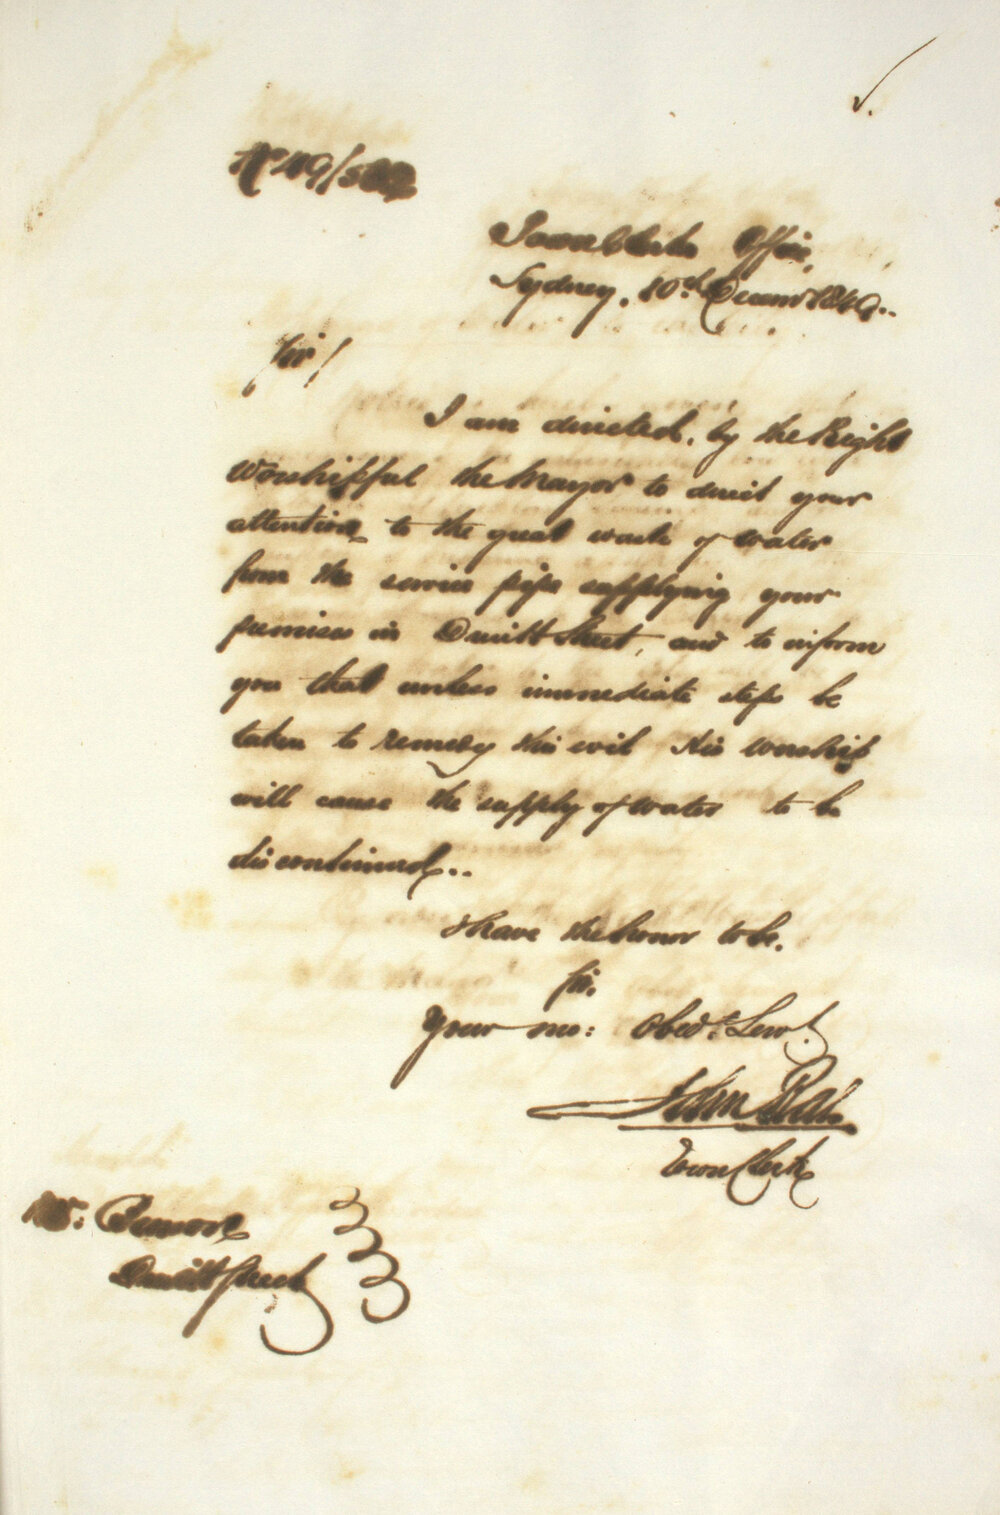 No 49/
Town Clerks Office,
Sydney, 10th Decemr 1849..
Sir!
I am directed, by the Right
Worshipful the Mayor to direct your
attention to the great waste of water
from the service pipe supplying your
premises in Druitt Street, and to inform
you that unless immediate steps be
taken to remedy this evil His Worship
will cause the supply of water to be
discontinued..
I have the honor to be.
Sir.
Your mo: Obedt. Servt.
John Rae
Town Clerk
Druitt Street